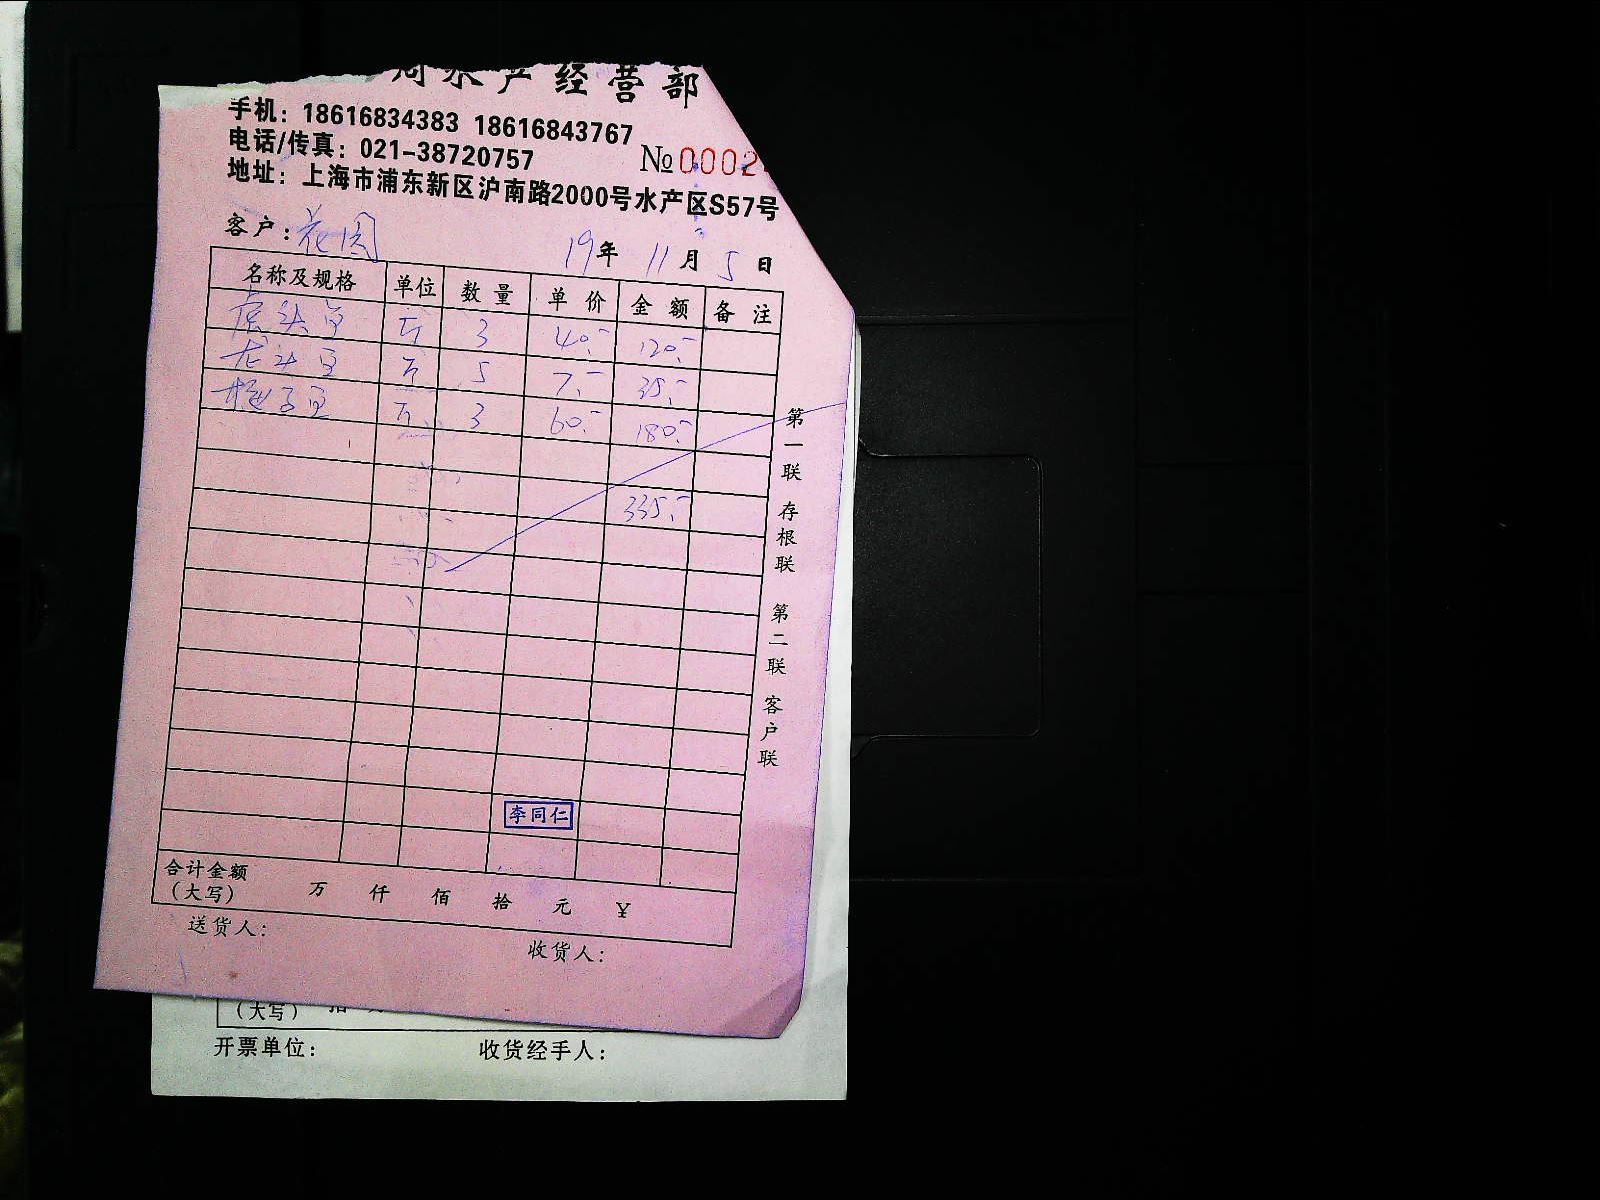 水产经营部
手机：18616834383 18616843767
电话/传真：021-38720757
№0002
地址：上海市浦东新区沪南路2000号水产区S57号
客户：花园
19年 11月 5日
名称及规格 单位 数量 单价 金额 备注
虎头鱼 斤 3 40.- 120.-
龙头鱼 斤 5 7.- 35.-
梅子鱼 斤 3 60.- 180.-
335.-
第一联 存根联 第二联 客户联
李同仁
合计金额
（大写） 万 仟 佰 拾 元 ¥
送货人：
收货人：
（大写）
开票单位： 收货经手人：